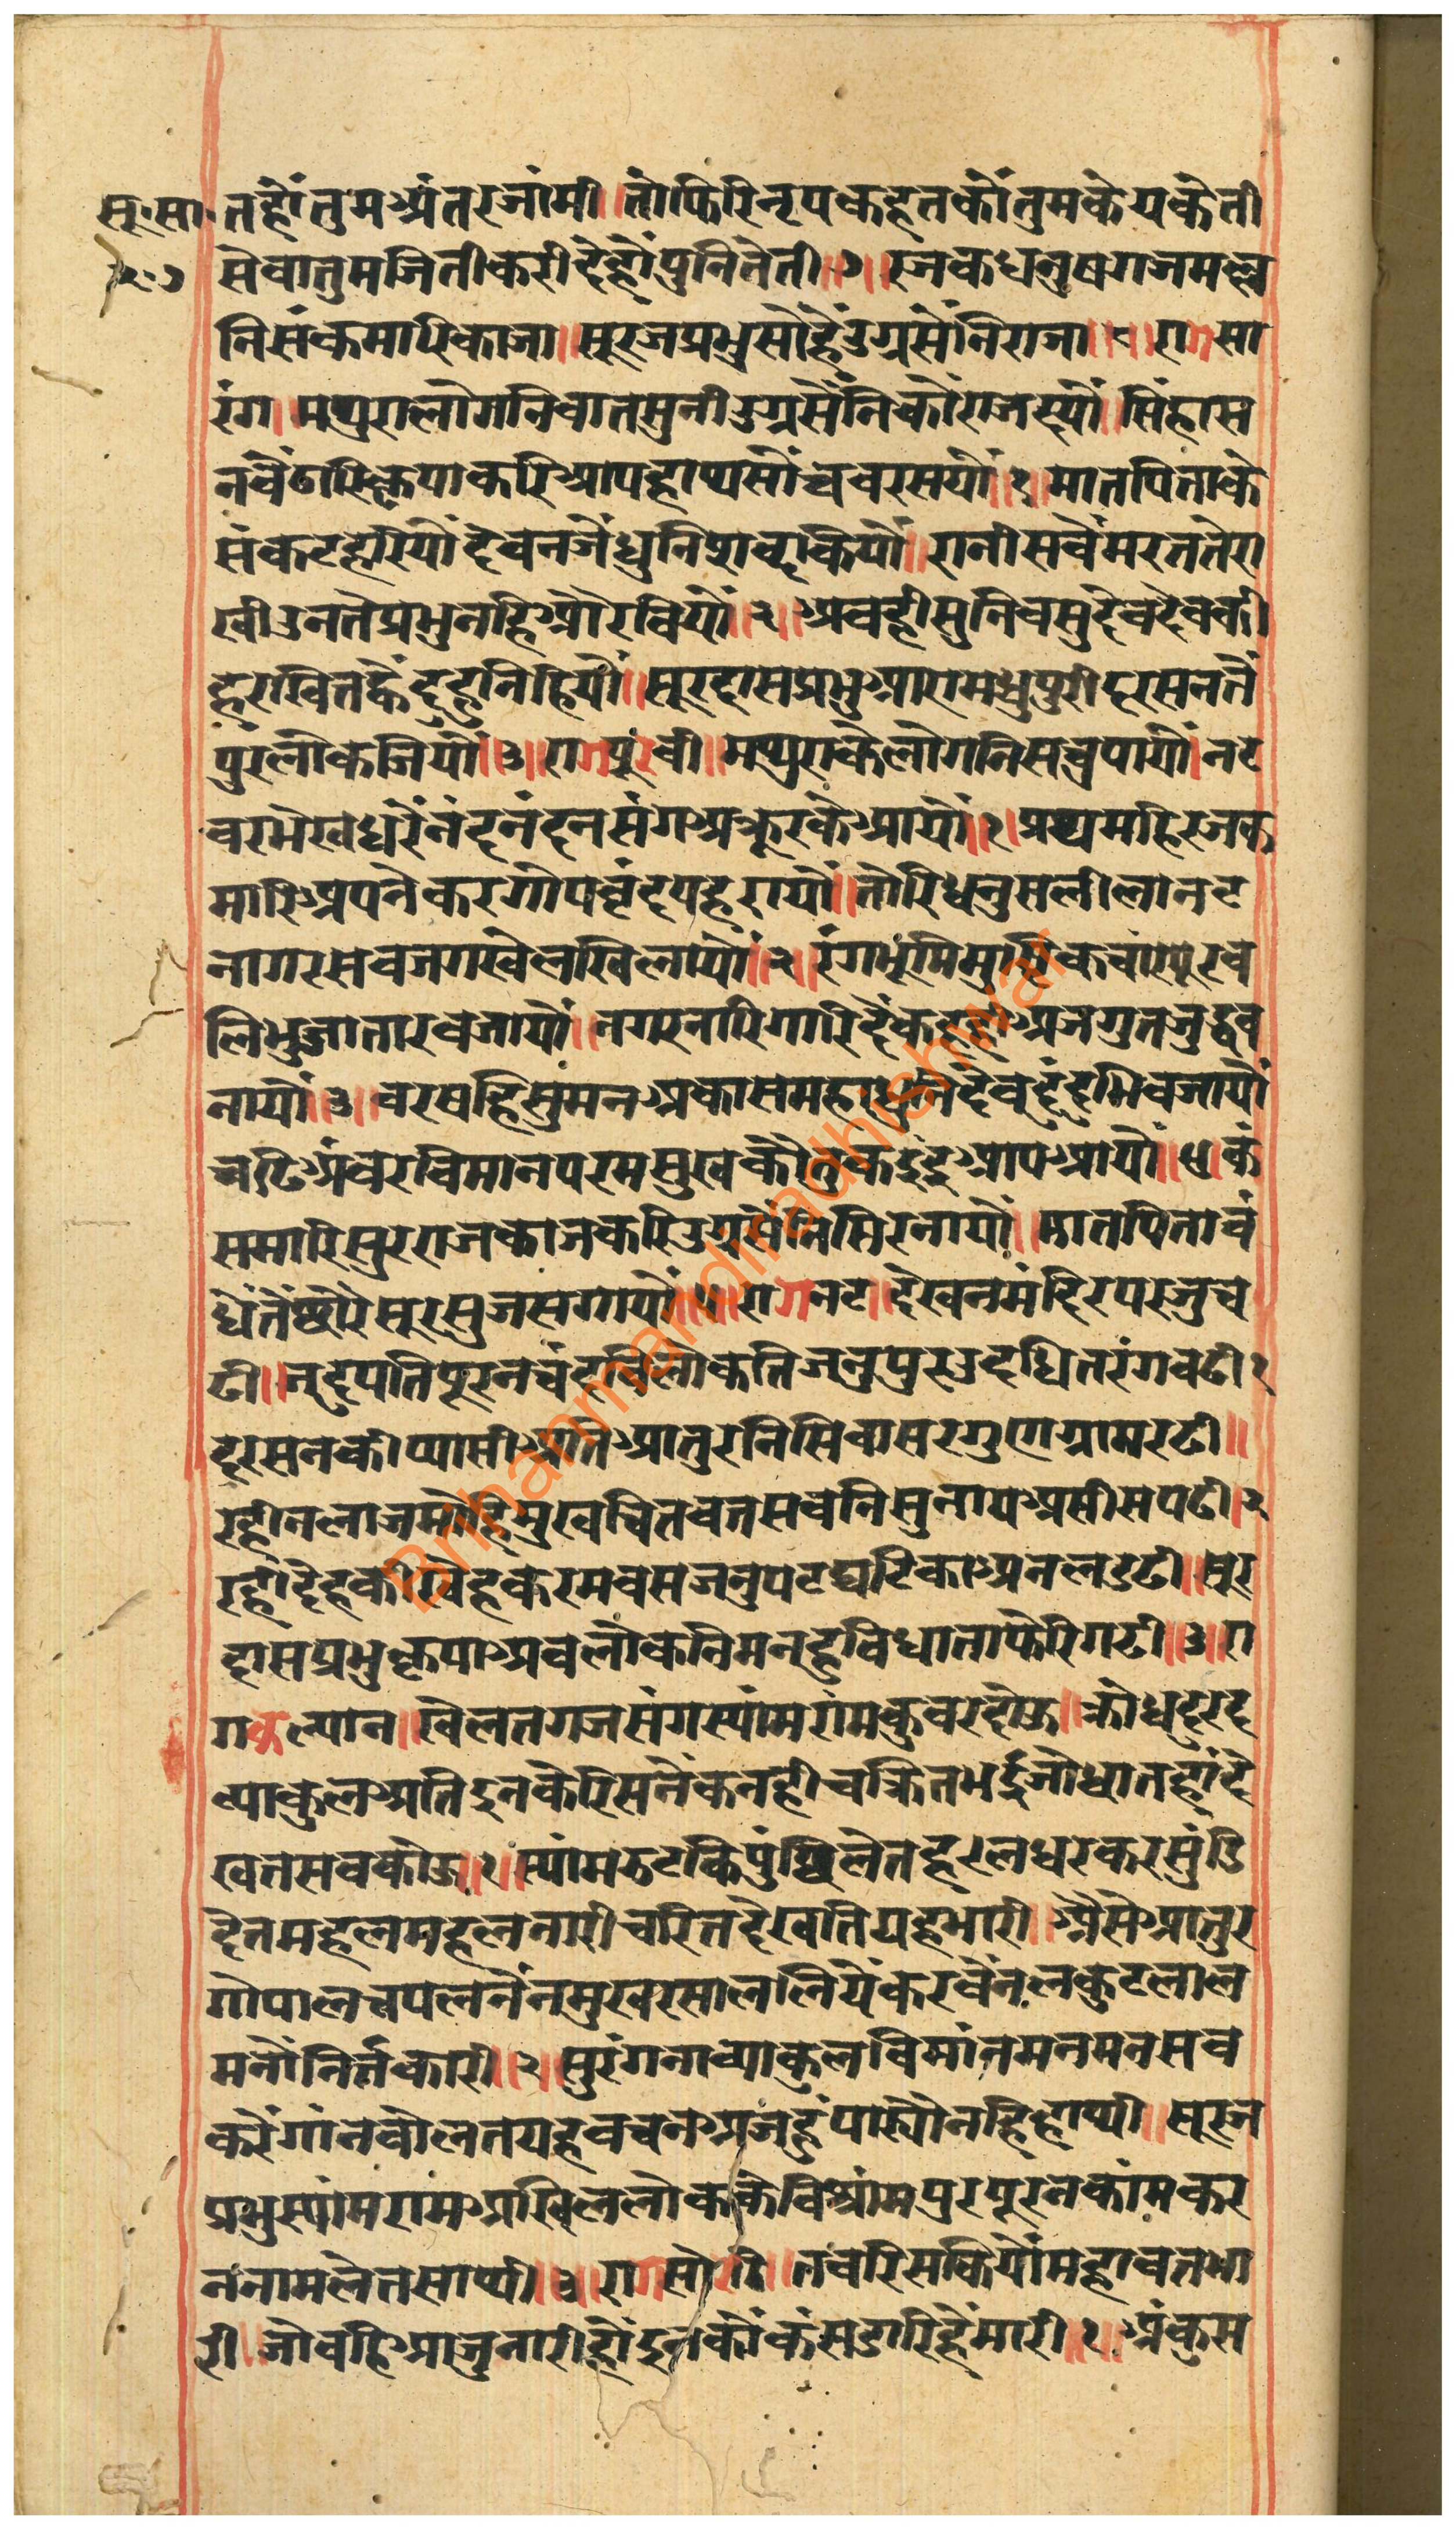 सू॰ सा॰ तहौं तुम अंतरजांमी ॥ तौ फिरि नृप कहत कौं तुमकै यकैती
२॰७ सेवा तुम जिती करी देहौं पुनि तेती ॥७॥ रजक धनुष गज मल्ल
नि संक मारि काजा ॥ सूरज प्रभु सोहैं उग्रसेंनि राजा ॥८॥ राग सा
रंग ॥ मथुरा लोगनि बात सुनी उग्रसैंनि कौं राज दयौ ॥ सिंहास
न बैठारि कृपा करि आप हाथ सौं चवर लयौ ॥१॥ मात पिता के
संकट हरियौं देवन जै धुनि शब्द कियौ ॥ रानी सबै मरत ते रा
खी उनतै प्रभु नहि और बियौं ॥२॥ अवही सुनि वसुदेव देवकी
हरखित ह्वै दुहुनि हियौ ॥ सूरदास प्रभु आए मधुपुरी दरसन तैं
पुर लोक जियौं ॥३॥ राग पूरवी ॥ मथुरा के लोगनि सच्चु पायौ ॥ नट
वर भेख धरैं नंदनंदन संग अक्रूर कै आयौं ॥१॥ प्रथमहि रजक
मारि अपनै कर गोप वृंद पहरायौं ॥ तोरि धनुस लीला नट
नागर सब जग खेल खिलायौं ॥२॥ रंगभूमि मुष्टिक चाणूर ब
लि भुजा तार बजायौं ॥ नगर नारि गारि दै कहत अजगुत जुद्ध ब
नायौ ॥३॥ बरषहि सुंमन अकास महा धुनि देव दुंदुभि बजायौं
चढि अंबर बिमान परम सुख कौतुक इंद्र आप आयौं ॥४॥ कं
स मारि सुर राज काज करि उग्रसेंनि सिर नायौं ॥ मात पिता बं
धे तैं छोरे सूर सुजस गायौ ॥५॥ राग नट ॥ देखन मंदिर पर जु च
ढी ॥ नदपति पूरन चंद बिलोकति जनु पुर उदधि तरंग बढी १
दरसन की प्यासी अति आतुर निसि वासर गुण ग्राम रढी ॥
रही न लाज मोहि मुख चितवत सबनि सुनाय असीस पढी ॥२
रही देह की खेह करम बस जनु पट घटिका अनल डढी ॥ सूर
दास प्रभु कृपा अवलोकनि मनहु बिधाता फेरि गढी ॥३॥ रा
ग कल्यान ॥ खेलत गज संग स्यांम रांम कुवर दोऊ ॥ क्रोध दुरद
व्याकुल अति इनकै रिस नैंक नही चक्रित भई जोधा तहां दे
खत सब कोऊ ॥१॥ स्यांम ऊटकि पुंछि लेत हलधर कर सुंडि
देत महल महल नारी चरित देखति यह भारी ॥ अैसे आतुर
गोपाल चपल नैंन मुख रसाल लियें कर बैंन लकुट लाल
मनौं निर्तकारी ॥२॥ सुरंगना व्याकुल बिमांन मन मन सब
करैं गांन बोलत यह बचन अजहुं पार्यौ नहि हाथी ॥ सूरज
प्रभु स्यांम राम अखिल लोक के बिश्रांम पुर पूरन कांम कर
न नाम लेत साथी ॥३॥ राग सोरठी ॥ तब रिस कियौं महावत भा
री ॥ जौ वहि आजु नारी हौं इन कौं कंस डारिहैं मारी ॥१॥ अंकुस